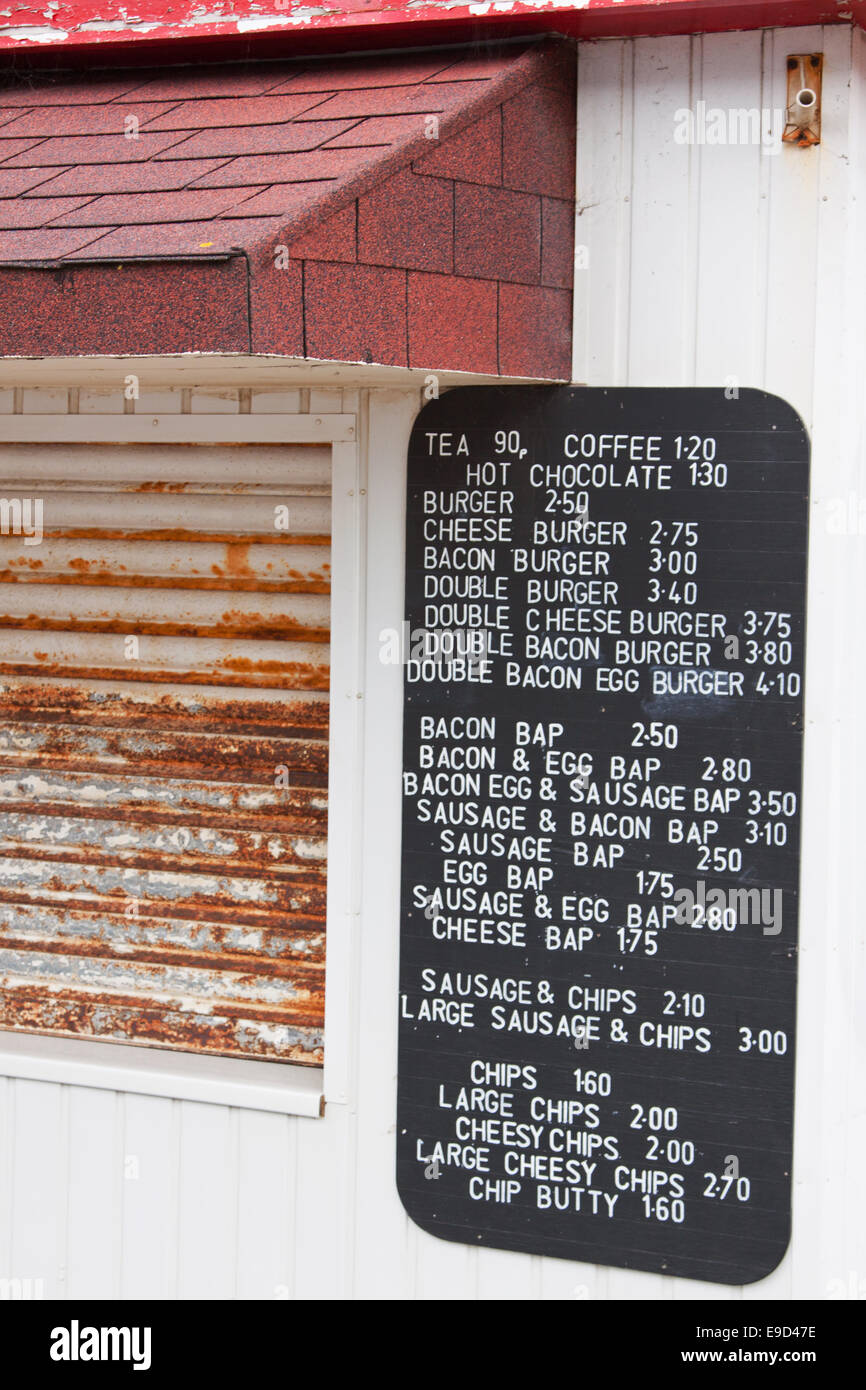 TEA 90p COFFEE 1·20
HOT CHOCOLATE 1·30
BURGER 2·50
CHEESE BURGER 2·75
BACON BURGER 3·00
DOUBLE BURGER 3·40
DOUBLE CHEESE BURGER 3·75
DOUBLE BACON BURGER 3·80
DOUBLE BACON EGG BURGER 4·10
BACON BAP 2·50
BACON & EGG BAP 2·80
BACON EGG & SAUSAGE BAP 3·50
SAUSAGE & BACON BAP 3·10
SAUSAGE BAP 2·50
EGG BAP 1·75
SAUSAGE & EGG BAP 2·80
CHEESE BAP 1·75
SAUSAGE & CHIPS 2·10
LARGE SAUSAGE & CHIPS 3·00
CHIPS 1·60
LARGE CHIPS 2·00
CHEESY CHIPS 2·00
LARGE CHEESY CHIPS 2·70
CHIP BUTTY 1·60
alamy stock photo
E9D47E
www.alamy.com